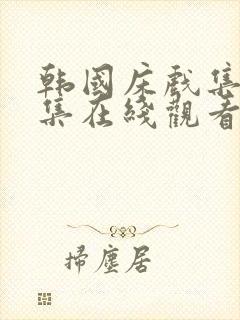 韩國床戲集
集在綫觀看
掃塵居